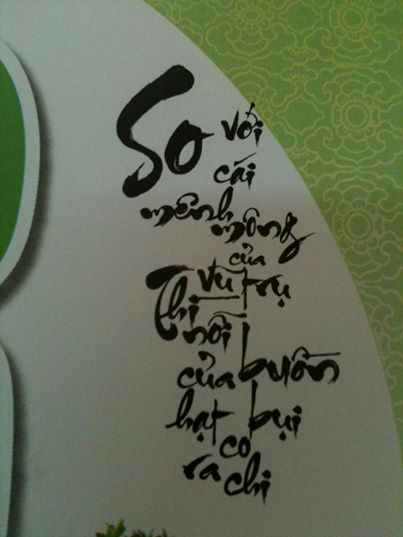 So với
cái
mênh mông
của
vũ trụ
Thì nỗi
của buồn
hạt bụi
co
ra chi